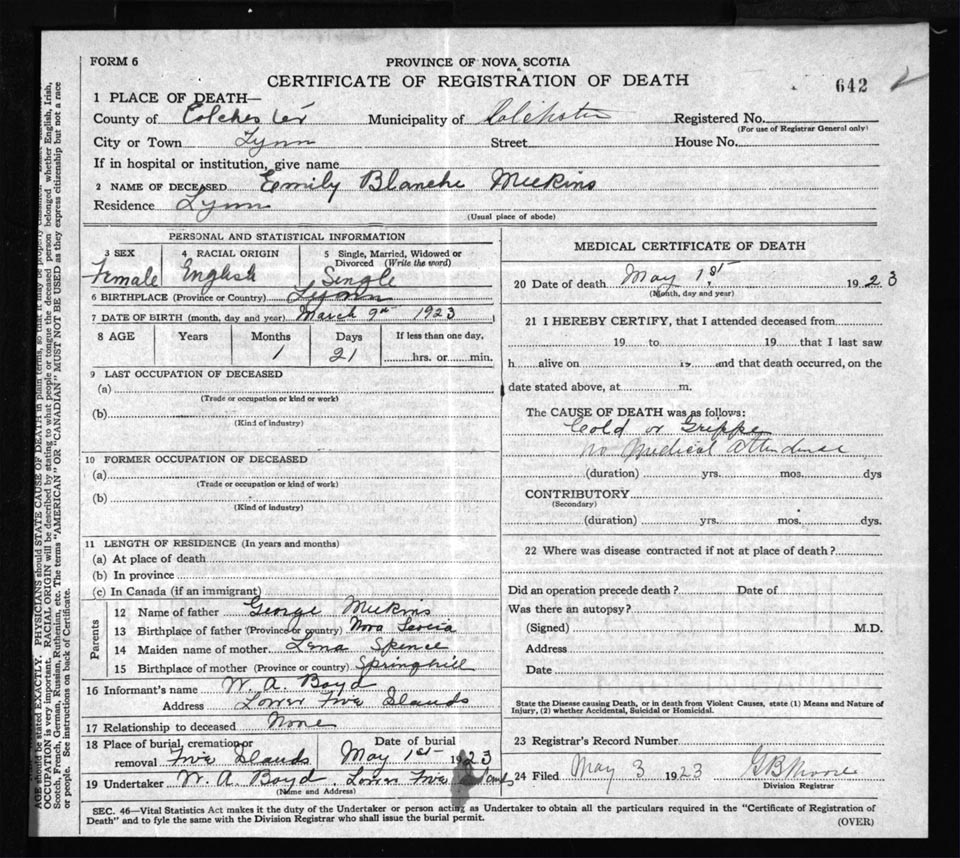 FORM 6
PROVINCE OF NOVA SCOTIA
CERTIFICATE OF REGISTRATION OF DEATH
642
1 PLACE OF DEATH—
County of Colchester Municipality of Colchester Registered No.
(For use of Registrar General only)
City or Town Lynn Street House No.
If in hospital or institution, give name
2 NAME OF DECEASED Emily Blanche Meekins
Residence Lynn
(Usual place of abode)
PERSONAL AND STATISTICAL INFORMATION
3 SEX 4 RACIAL ORIGIN 5 Single, Married, Widowed or Divorced (Write the word)
Female English Single
6 BIRTHPLACE (Province or Country) Lynn
7 DATE OF BIRTH (month, day and year) March 9th 1923
8 AGE Years Months Days If less than one day,
1 21 hrs. or min.
9 LAST OCCUPATION OF DECEASED
(a)
(Trade or occupation or kind or work)
(b)
(Kind of industry)
10 FORMER OCCUPATION OF DECEASED
(a)
(Trade or occupation or kind of work)
(b)
(Kind of industry)
11 LENGTH OF RESIDENCE (In years and months)
(a) At place of death
(b) In province
(c) In Canada (if an immigrant)
Parents
12 Name of father George Meekins
13 Birthplace of father (Province or country) Nova Scocia
14 Maiden name of mother Lena Spence
15 Birthplace of mother (Province or country) Springhill
16 Informant's name W. A. Boyd
Address Lower Five Islands
17 Relationship to deceased None
18 Place of burial, cremation or removal Five Islands
Date of burial May 1st 1923
19 Undertaker W. A. Boyd Lower Five Islands
(Name and Address)
MEDICAL CERTIFICATE OF DEATH
20 Date of death May 1st, 1923
(Month, day and year)
21 I HEREBY CERTIFY, that I attended deceased from
19 to 19 that I last saw
h alive on 19 and that death occurred, on the
date stated above, at m.
The CAUSE OF DEATH was as follows:
Cold or Grippe
no Medical Attendence
(duration) yrs. mos. dys
CONTRIBUTORY
(Secondary)
(duration) yrs. mos. dys.
22 Where was disease contracted if not at place of death?
Did an operation precede death? Date of
Was there an autopsy?
(Signed) M.D.
Address
Date
State the Disease causing Death, or in death from Violent Causes, state (1) Means and Nature of
Injury, (2) whether Accidental, Suicidal or Homicidal.
23 Registrar's Record Number
24 Filed May 3 1923 G B Moore
Division Registrar
SEC. 46—Vital Statistics Act makes it the duty of the Undertaker or person acting as Undertaker to obtain all the particulars required in the "Certificate of Registration of
Death" and to fyle the same with the Division Registrar who shall issue the burial permit.
(OVER)
AGE should be stated EXACTLY. PHYSICIANS should STATE CAUSE OF DEATH in plain terms, so that it may be properly classified.
OCCUPATION is very important. RACIAL ORIGIN will be described by stating to what people or tongue the deceased person belonged whether English, Irish,
Scotch, French, German, Russian, Ruthenian, etc. The terms "AMERICAN" OR "CANADIAN" MUST NOT BE USED as they express citizenship but not a race
or people. See instructions on back of Certificate.